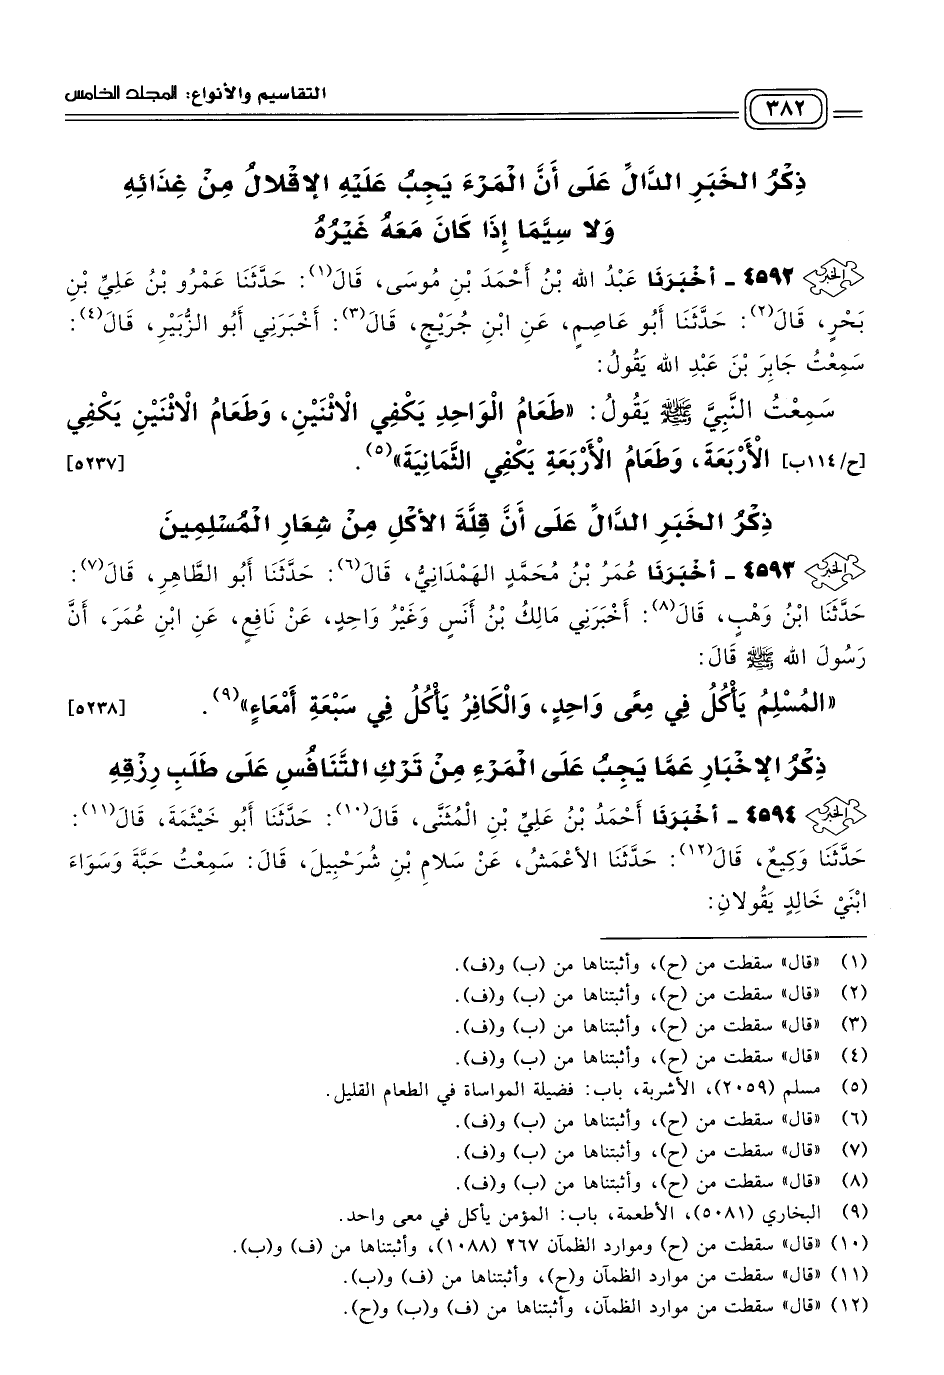 التقاسيم والأنواع: المجلد الخامس
٣٨٢
ذِكْرُ الخَبَرِ الدَّالِّ عَلَى أَنَّ الْمَرْءَ يَجِبُ عَلَيْهِ الإقْلالُ مِنْ غِذَائِهِ
وَلا سِيَّمَا إِذَا كَانَ مَعَهُ غَيْرُهُ
٤٥٩٢ - أخْبَرَنَا عَبْدُ الله بْنُ أَحْمَدَ بْنِ مُوسَى، قَالَ(١): حَدَّثَنَا عَمْرُو بْنُ عَلِيِّ بْنِ
بَحْرٍ، قَالَ(٢): حَدَّثَنَا أَبُو عَاصِمٍ، عَنِ ابْنِ جُرَيْجٍ، قَالَ(٣): أَخْبَرَنِي أَبُو الزُّبَيْرِ، قَالَ(٤):
سَمِعْتُ جَابِرَ بْنَ عَبْدِ الله يَقُولُ:
سَمِعْتُ النَّبِيَّ ﷺ يَقُولُ: «طَعَامُ الْوَاحِدِ يَكْفِي الْاثْنَيْنِ، وَطَعَامُ الْاثْنَيْنِ يَكْفِي
[ح/١١٤ب] الْأَرْبَعَةَ، وَطَعَامُ الْأَرْبَعَةِ يَكْفِي الثَّمَانِيَةَ»(٥). [٥٢٣٧]
ذِكْرُ الخَبَرِ الدَّالِّ عَلَى أَنَّ قِلَّةَ الأكْلِ مِنْ شِعَارِ الْمُسْلِمِينَ
٤٥٩٣ - أخْبَرَنَا عُمَرُ بْنُ مُحَمَّدٍ الهَمْدَانِيُّ، قَالَ(٦): حَدَّثَنَا أَبُو الطَّاهِرِ، قَالَ(٧):
حَدَّثَنَا ابْنُ وَهْبٍ، قَالَ(٨): أَخْبَرَنِي مَالِكُ بْنُ أَنَسٍ وَغَيْرُ وَاحِدٍ، عَنْ نَافِعٍ، عَنِ ابْنِ عُمَرَ، أَنَّ
رَسُولَ الله ﷺ قَالَ:
«الْمُسْلِمُ يَأْكُلُ فِي مِعًى وَاحِدٍ، وَالْكَافِرُ يَأْكُلُ فِي سَبْعَةِ أَمْعَاءٍ»(٩). [٥٢٣٨]
ذِكْرُ الإخْبَارِ عَمَّا يَجِبُ عَلَى الْمَرْءِ مِنْ تَرْكِ التَّنَافُسِ عَلَى طَلَبِ رِزْقِهِ
٤٥٩٤ - أخْبَرَنَا أَحْمَدُ بْنُ عَلِيِّ بْنِ الْمُثَنَّى، قَالَ(١٠): حَدَّثَنَا أَبُو خَيْثَمَةَ، قَالَ(١١):
حَدَّثَنَا وَكِيعٌ، قَالَ(١٢): حَدَّثَنَا الأعْمَشُ، عَنْ سَلامِ بْنِ شُرَحْبِيلَ، قَالَ: سَمِعْتُ حَبَّةَ وَسَوَاءَ
ابْنَيْ خَالِدٍ يَقُولانِ:
(١) «قال» سقطت من (ح)، وأثبتناها من (ب) و(ف).
(٢) «قال» سقطت من (ح)، وأثبتناها من (ب) و(ف).
(٣) «قال» سقطت من (ح)، وأثبتناها من (ب) و(ف).
(٤) «قال» سقطت من (ح)، وأثبتناها من (ب) و(ف).
(٥) مسلم (٢٠٥٩)، الأشربة، باب: فضيلة المواساة في الطعام القليل.
(٦) «قال» سقطت من (ح)، وأثبتناها من (ب) و(ف).
(٧) «قال» سقطت من (ح)، وأثبتناها من (ب) و(ف).
(٨) «قال» سقطت من (ح)، وأثبتناها من (ب) و(ف).
(٩) البخاري (٥٠٨١)، الأطعمة، باب: المؤمن يأكل في معى واحد.
(١٠) «قال» سقطت من (ح) وموارد الظمآن ٢٦٧ (١٠٨٨)، وأثبتناها من (ف) و(ب).
(١١) «قال» سقطت من موارد الظمآن و(ح)، وأثبتناها من (ف) و(ب).
(١٢) «قال» سقطت من موارد الظمآن، وأثبتناها من (ف) و(ب) و(ح).